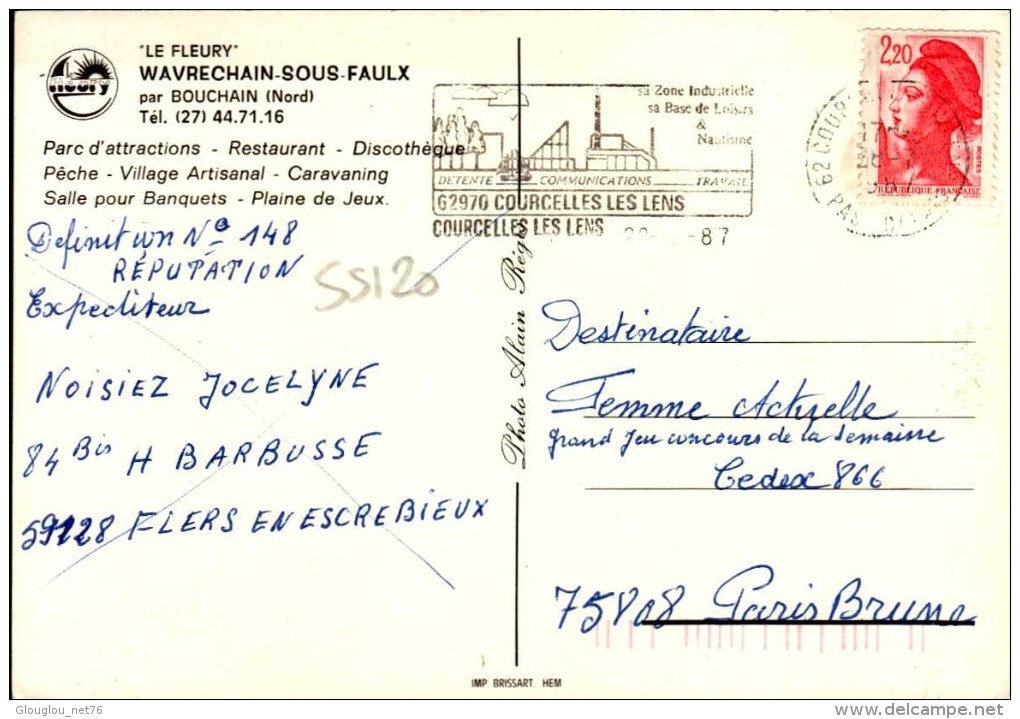 "LE FLEURY"
WAVRECHAIN-SOUS-FAULX
par BOUCHAIN (Nord)
Tél. (27) 44.71.16
fleury
Parc d'attractions - Restaurant - Discothèque
Pêche - Village Artisanal - Caravaning
Salle pour Banquets - Plaine de Jeux.
Definition No 148
RÉPUTATION
SS120
Expediteur
NOISIEZ JOCELYNE
84 Bis H BARBUSSE
59128 FLERS EN ESCREBIEUX
sa Zone Industrielle
sa Base de Loisirs
&
Nautisme
DETENTE COMMUNICATIONS TRAVAIL
62970 COURCELLES LES LENS
COURCELLES LES LENS
87
62 COUR
PAS
2,20
POSTES
REPUBLIQUE FRANÇAISE
Photo Alain Régi
Destinataire
Femme Actuelle
grand Jeu concours de la semaine
Cedex 866
75808 Paris Brune
IMP. BRISSART. HEM
Glouglou_net76
©delcampe.net